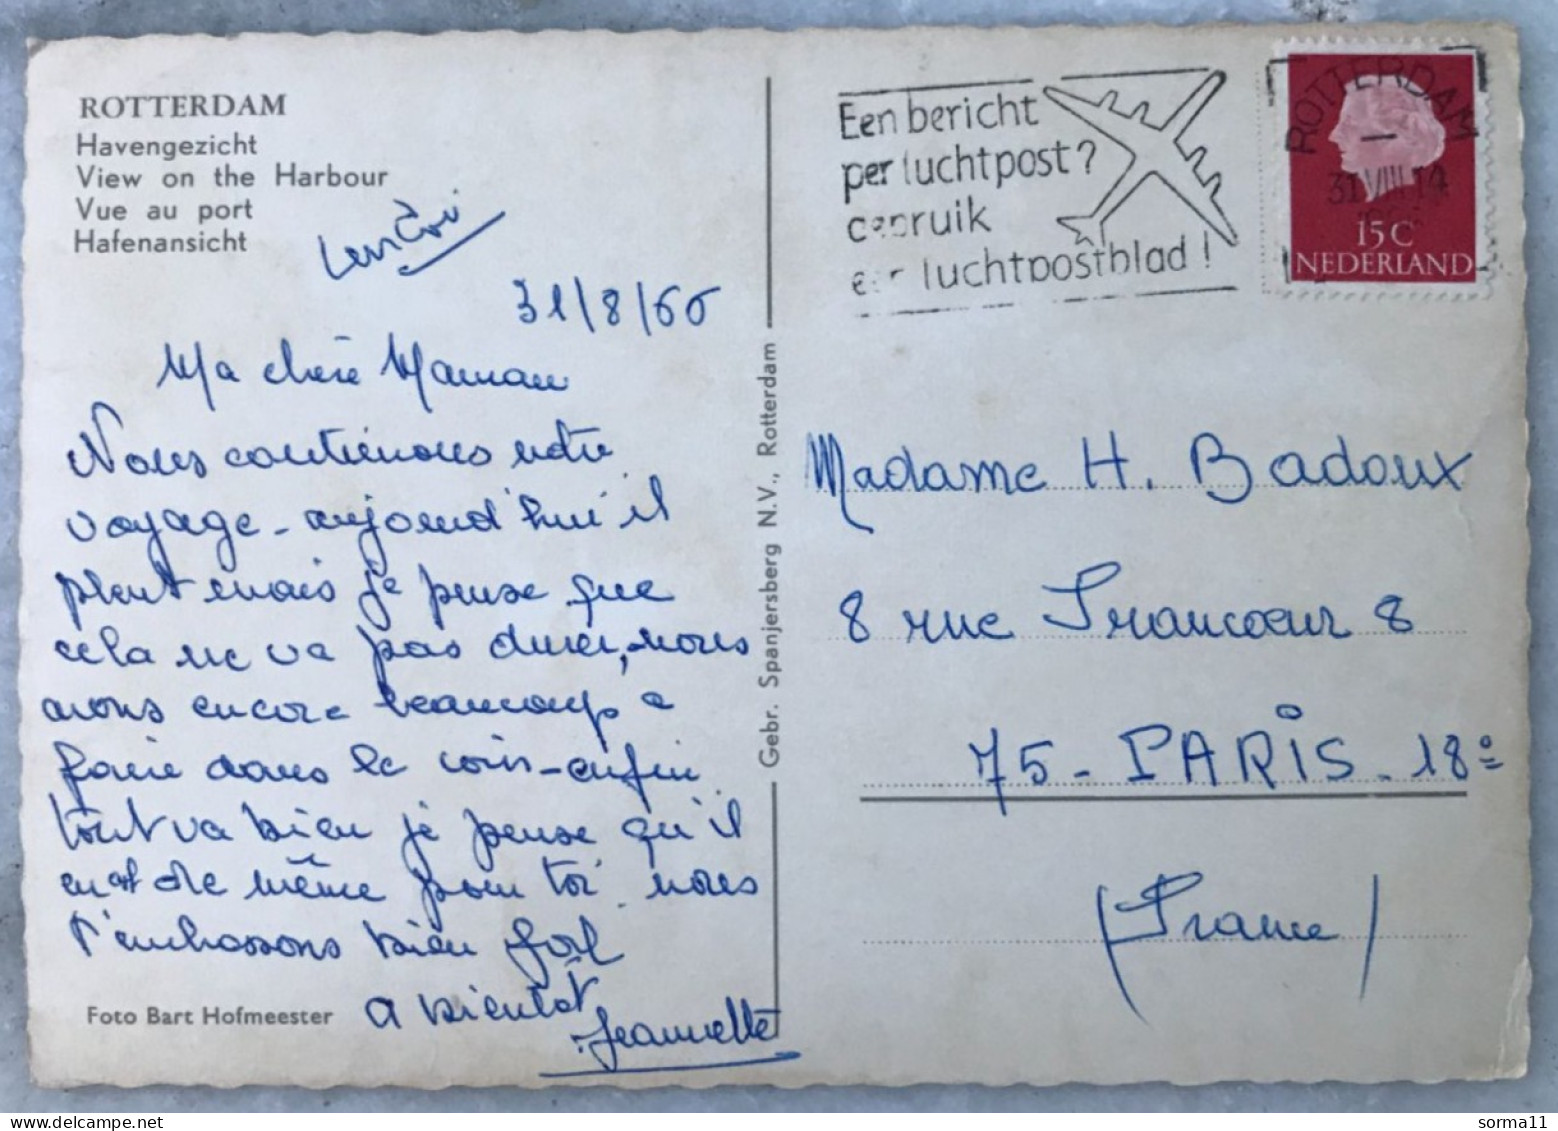 ROTTERDAM
Havengezicht
View on the Harbour
Vue au port
Hafenansicht
31/8/66
Ma chère Maman
Nous continuons notre
voyage - aujourd'hui il
pleut mais je pense que
cela ne va pas durer, nous
avons encore beaucoup a
faire dans le coin - enfin
tout va bien je pense qu'il
en est de même pour toi. nous
t'embrassons bien fort
a bientôt
Jeannette
Foto Bart Hofmeester
Gebr. Spanjersberg N.V., Rotterdam
Een bericht
per luchtpost?
gebruik
een luchtpostblad!
ROTTERDAM
31 VIII 14
15 C
NEDERLAND
Madame H. Badoux
8 rue Francoeur 8
75 - PARIS - 18e
(France)
sorma11